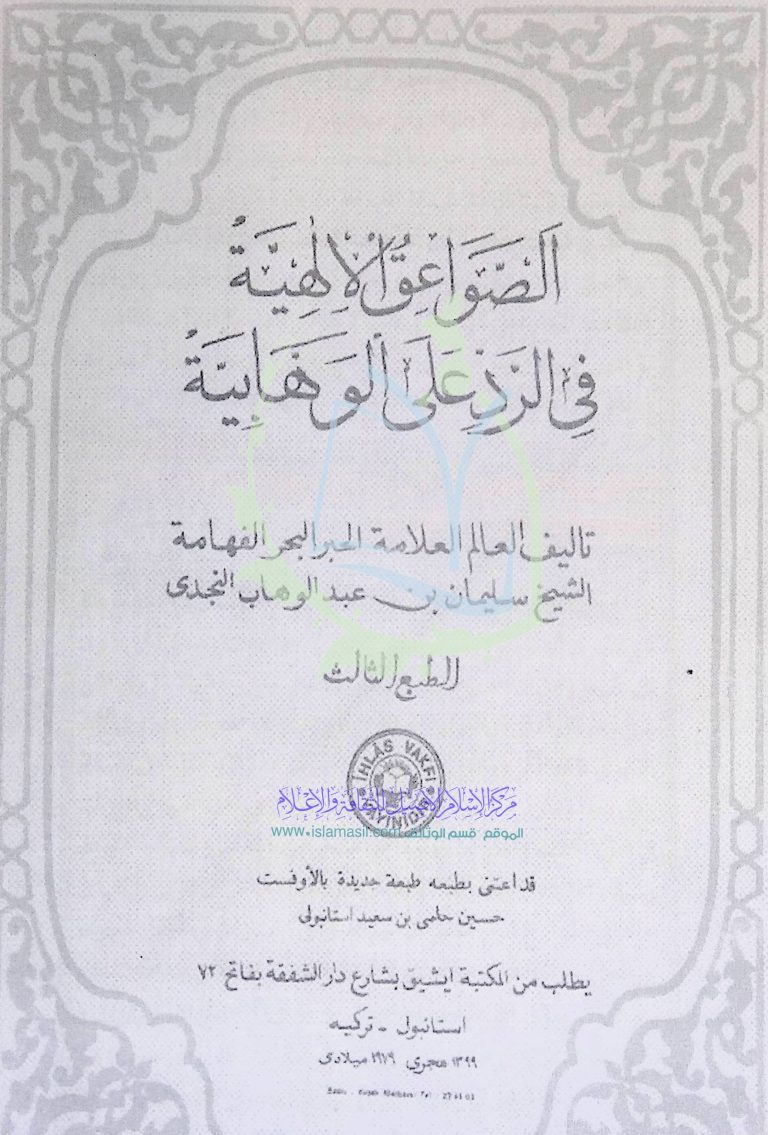 الصَّوَاعِقُ الْإِلٰهِيَّةُ
فِي الرَّدِّ عَلَى الْوَهَّابِيَّةُ
تاليف العالم العلامة الحبر البحر الفهامة
الشيخ سليمان بن عبد الوهاب النجدى
الطبع الثالث
İHLÂS VAKFI
YAYINIDIR
مركز الإسلام الأصيل للثقافة والإعلام
الموقع قسم الوثائق www.islamasil.com
قد اعتنى بطبعه طبعة جديدة بالأوفست
حسين حلمى بن سعيد استانبولى
يطلب من المكتبة ايشيق بشارع دار الشفقة بفاتح ٧٢
استانبول - تركيه
١٣٩٩ هجرى ١٩٧٩ ميلادى